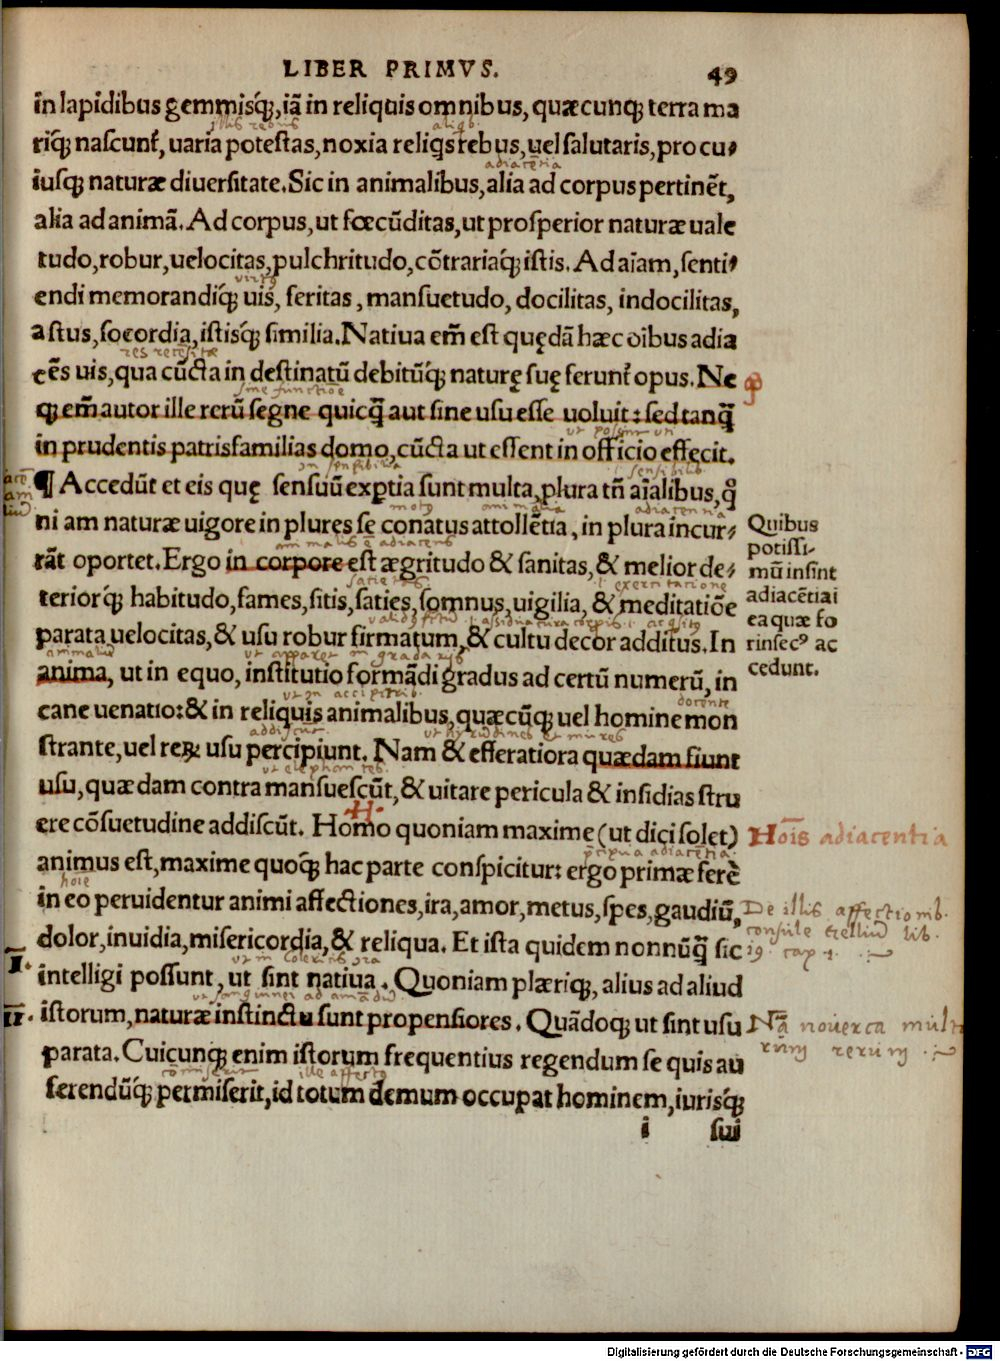 LIBER PRIMVS. 49
in lapidibus gemmisq́ꝫ, iā in reliquis omnibus, quæcunqꝫ terra ma
illis rebus aliqb
riqꝫ nascunt̃, uaria potestas, noxia reliq̃s rebus, uel salutaris, pro cu-
adiacētia
iusqꝫ naturæ diuersitate. Sic in animalibus, alia ad corpus pertinēt,
alia ad animā. Ad corpus, ut fœcūditas, ut prosperior naturæ uale
tudo, robur, uelocitas, pulchritudo, cōtrariaq́ꝫ istis. Ad aīam, senti-
endi memorandiq́ꝫ uis, feritas, mansuetudo, docilitas, indocilitas,
astus, socordia, istisq́ꝫ similia. Natiua em̃ est quędā hæc oībus adia
res recēsitæ
cēs uis, qua cūcta in destinatū debitūq́ꝫ naturę suę ferunt̃ opus. Ne
sine functiōe
qꝫ em̃ autor ille rerū segne quicq̃ aut sine usu esse uoluit: sed tanq̃
ut possint uti
in prudentis patrisfamilias domo, cūcta ut essent in officio effecit.
in sensibilia i sensibilib
¶ Accedūt et eis quę sensuū exptia sunt multa, plura tñ aīalibus, q̃
motꝰ animalia adiacentia
ni am naturæ uigore in plures se conatus attollētia, in plura incur-
animalis ē adiacens
rāt oportet. Ergo in corpore est ægritudo & sanitas, & melior de-
i exercitatione
teriorq́ꝫ habitudo, fames, sitis, saties, somnus, uigilia, & meditatiōe
parata uelocitas, & usu robur firmatum, & cultu decor additus. In
animaliū ut apparet in gradarijs
anima, ut in equo, institutio formādi gradus ad certū numerū, in
ut in accipitrib. docente
cane uenatio: & in reliquis animalibus, quæcūqꝫ uel homine mon
addiscūt ut hyrudines et mures
strante, uel reꝝ usu percipiunt. Nam & efferatiora quædam fiunt
ut elephantes
usu, quædam contra mansuescūt, & uitare pericula & insidias stru
H.
ere cōsuetudine addiscūt. Homo quoniam maxime (ut dici solet)
p̄cipua adiacētia
animus est, maxime quoq́ꝫ hac parte conspicitur: ergo primæ ferè
hoīe
in eo peruidentur animi affectiones, ira, amor, metus, spes, gaudiū,
dolor, inuidia, misericordia, & reliqua. Et ista quidem nonnūq̃ sic
ut in colericis ira
intelligi possunt, ut sint natiua. Quoniam plæriqꝫ, alius ad aliud
ut sanguinei ad amādū
istorum, naturæ instinctu sunt propensiores. Quādoqꝫ ut sint usu
parata. Cuicunqꝫ enim istorum frequentius regendum se quis au
ille affectꝰ
ferendūq́ꝫ permiserit, id totum demum occupat hominem, iurisq́ꝫ
i sui
Quibus
potissi-
mū insint
adiacētia i
ea quæ fo
rinsecꝰ ac
cedunt.
Hoīs adiacentia
De illis affectionib.
consule Gelliū lib.
19. cap 1.
I.
II.
Nā nouerca multa
rum rerum
Digitalisierung gefördert durch die Deutsche Forschungsgemeinschaft - DFG